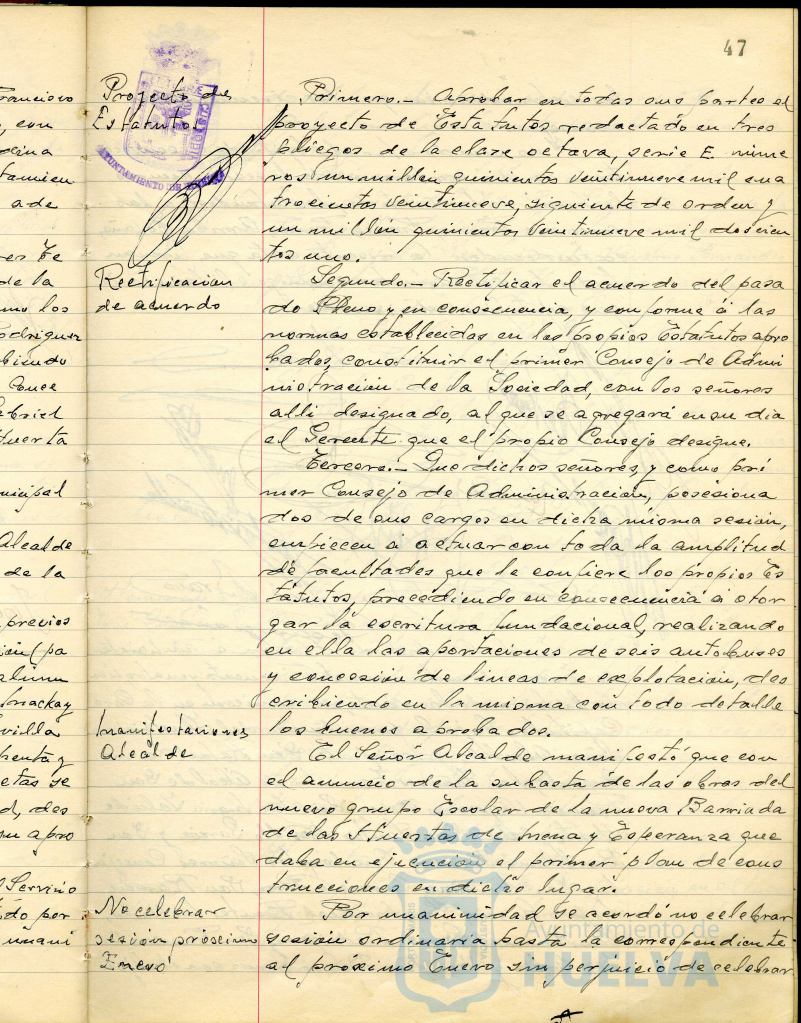 47
Francisco
, con
tamien
ade
de la
mo los
odriguez
biendo
Conce
abriel
Huerta
nicipal
Alcalde
de la
previos
ion (pa
Mackay
villa
etas se
d, des
su apro
Servicio
do por
unani
Proyecto de
Estatutos
AYUNTAMIENTO DE HUELVA
Primero.- Aprobar en todas sus partes el
proyecto de Estatutos redactado en tres
pliegos de la clase octava, serie E. núme
ros un millón quinientos veintinueve mil cua
trocientos veintinueve, siguiente de orden y
un millón quinientos veintinueve mil doscien
tos uno.
Rectificacion
de acuerdo
Segundo.- Rectificar el acuerdo del pasa
do Pleno y en consecuencia, y conforme á las
normas establecidas en los propios Estatutos apro
bados, constituir el primer Consejo de Admi
nistración de la Sociedad, con los señores
alli designado, al que se agregará en su dia
el Gerente que el propio Consejo designe.
Tercero.- Que dichos señores, y como pri
mer Consejo de Administración, posesiona
dos de sus cargos en dicha misma sesión,
empiecen á actuar con toda la amplitud
de facultades que le confiere los propios Es
tatutos, procediendo en consecuencia á otor
gar la escritura fundacional, realizando
en ella las aportaciones de seis autobuses
y concesión de lineas de explotación, des
cribiendo en la misma con todo detalle
los buenos aprobados.
Manifestaciones
Alcalde
El Señor Alcalde manifestó que con
el anuncio de la subasta de las obras del
nuevo grupo Escolar de la nueva Barriada
de las Huertas de Mena y Esperanza que
daba en ejecución el primer plan de cons
trucciones en dicho lugar.
No celebrar
sesión próximo
Enero
Por unanimidad se acordó no celebrar
sesión ordinaria hasta la correspondiente
al próximo Enero sin perjuicio de celebrar
Ayuntamiento de
HUELVA